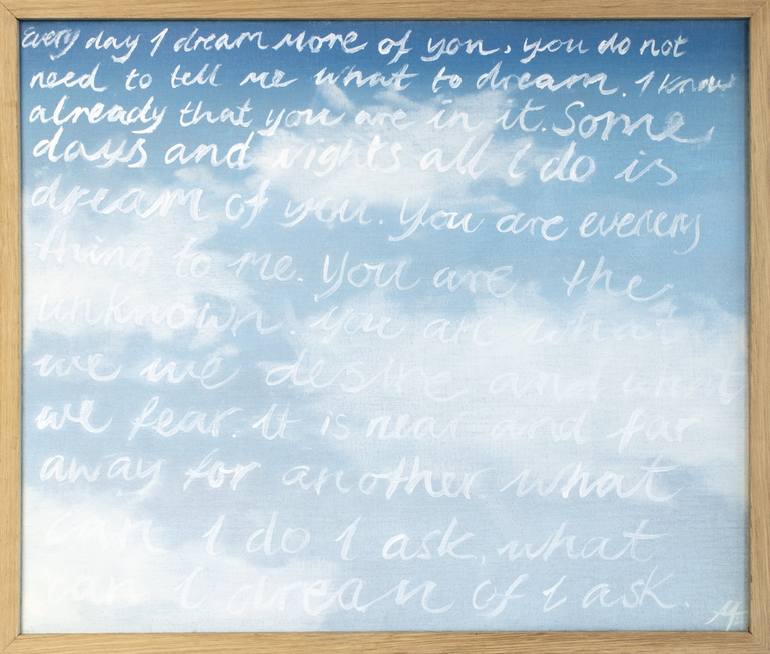 Every day I dream more of you, you do not
need to tell me what to dream. I know
already that you are in it. Some
days and nights all I do is
dream of you. You are everery
thing to me. You are the
unknown. you are what
we we desire and what
we fear. It is near and far
away for another what
can I do I ask, what
can I dream of I ask.